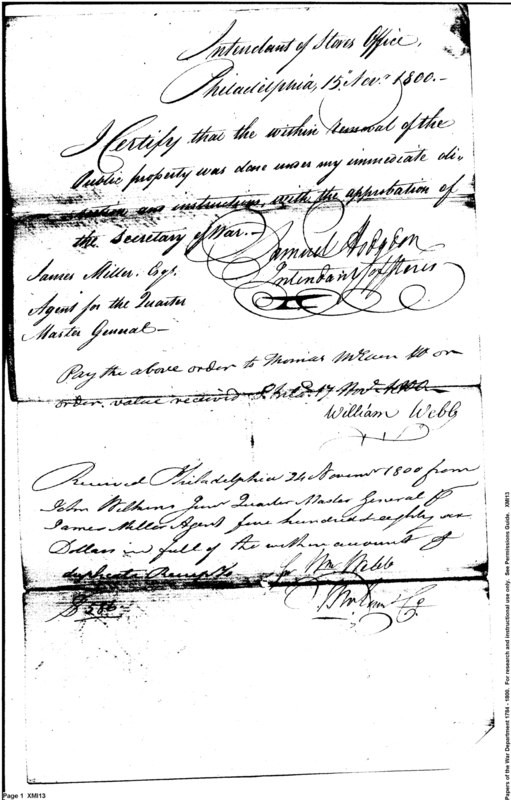 Intendant of Stores Office,
Philadelphia, 15 Nov.r 1800.-
I Certify that the within removal of the
Public property was done under my immediate di-
rection and instructions, with the approbation of
the Secretary of War.-
Samuel Hodgdon
Intendant of Stores
James Miller. Esqr.
Agent for the Quarter
Master General-
Pay the above order to Thomas McEuen & Co or
order. value received Philda. 17 Novr. 1800.
William Webb
Received Philadelphia 24 Novemr 1800 from
John Wilkins Junr Quarter Master General P
James Miller Agent five hundred eighty six
Dollars in full of the within account of
duplicate Receipts for Wm Webb
$ 586
Page 1 XMI13
Papers of the War Department 1784 - 1800. For research and instructional use only. See Permissions Guide. XMI13